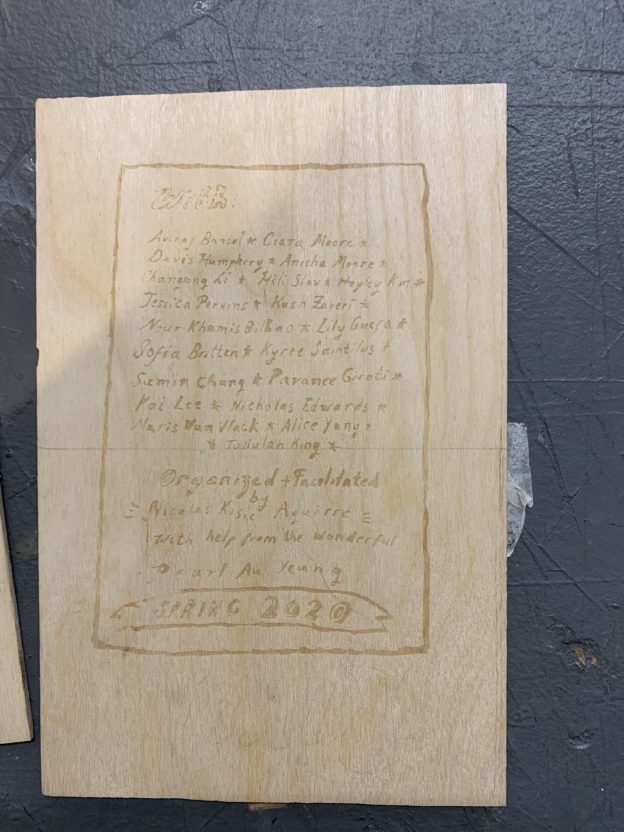 With:
Aviraj Bansal * Ciara Moore *
Davis Humphrey * Anisha Moore *
Li * Hili Slav * Hayley Kim *
Jessica Perkins * Kush Zaveri *
Nour Khamis Bilbao * Lily *
Sofia Britten * Kyree Saintilus *
Sumin Chang * Paranee
Kai Lee * Nicholas Edwards *
Maris Van Vlack * Alice Yang *
* King *
Organized + Facilitated
by
Nicolas Aguirre
With help from the wonderful
Pearl Au Yeung
SPRING 2020